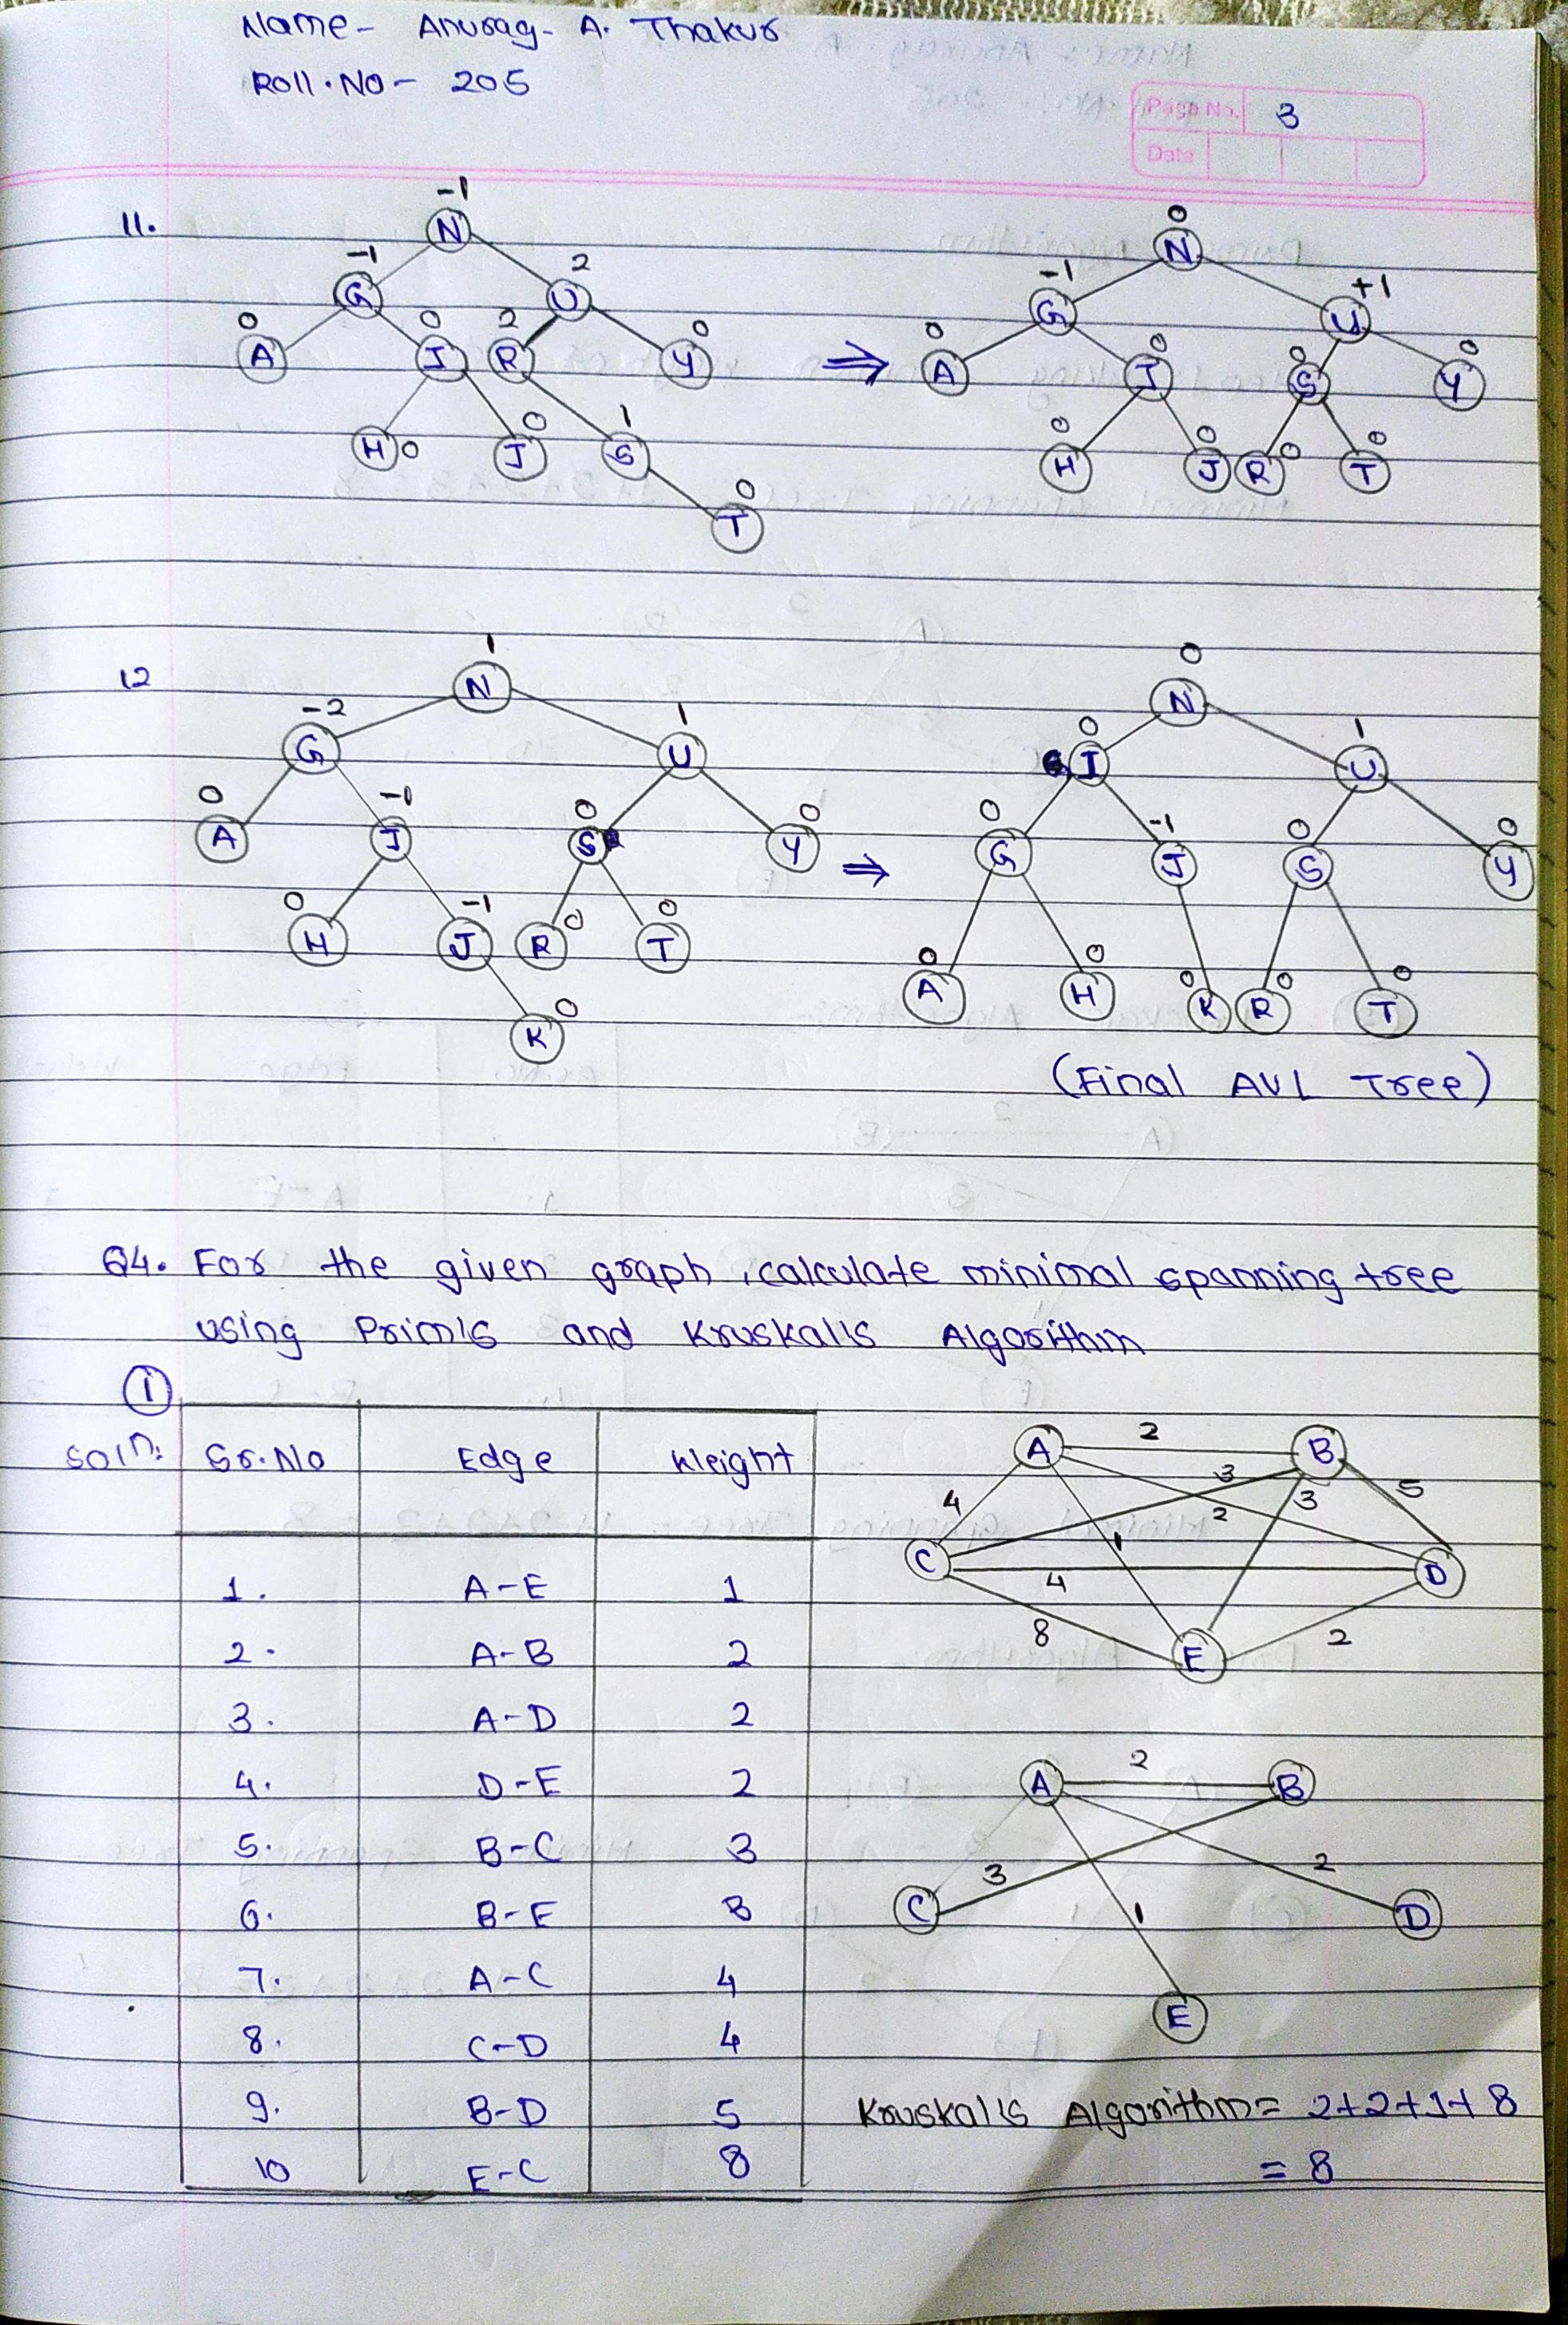 Name- Anurag- A. Thakur
Roll.No- 205
Page No. 3
Date
11.
-1
N
-1
G
2
U
0
A
0
I
2
R
0
Y
H 0
0
J
1
S
0
T
⇒
0
N
-1
G
+1
U
0
A
0
I
0
S
0
Y
0
H
0
J
R 0
0
T
12
1
N
-2
G
1
U
0
A
-1
I
0
S
0
Y
0
H
-1
J
R 0
0
T
K 0
⇒
0
N
0
I
1
U
0
G
-1
J
0
S
0
Y
0
A
0
H
0
K
R 0
0
T
(Final AVL Tree)
Q4. For the given graph, calculate minimal spanning tree
using Prim's and Kruskal's Algorithm
1
soln:
Sr.No Edge Weight
1. A-E 1
2. A-B 2
3. A-D 2
4. D-E 2
5. B-C 3
6. B-E 3
7. A-C 4
8. C-D 4
9. B-D 5
10 E-C 8
A 2 B
4 3 2 3 5
C 1 D
4
8 E 2
A 2 B
3 2
C 1 D
E
Kruskal's Algorithm = 2+2+1+3
= 8